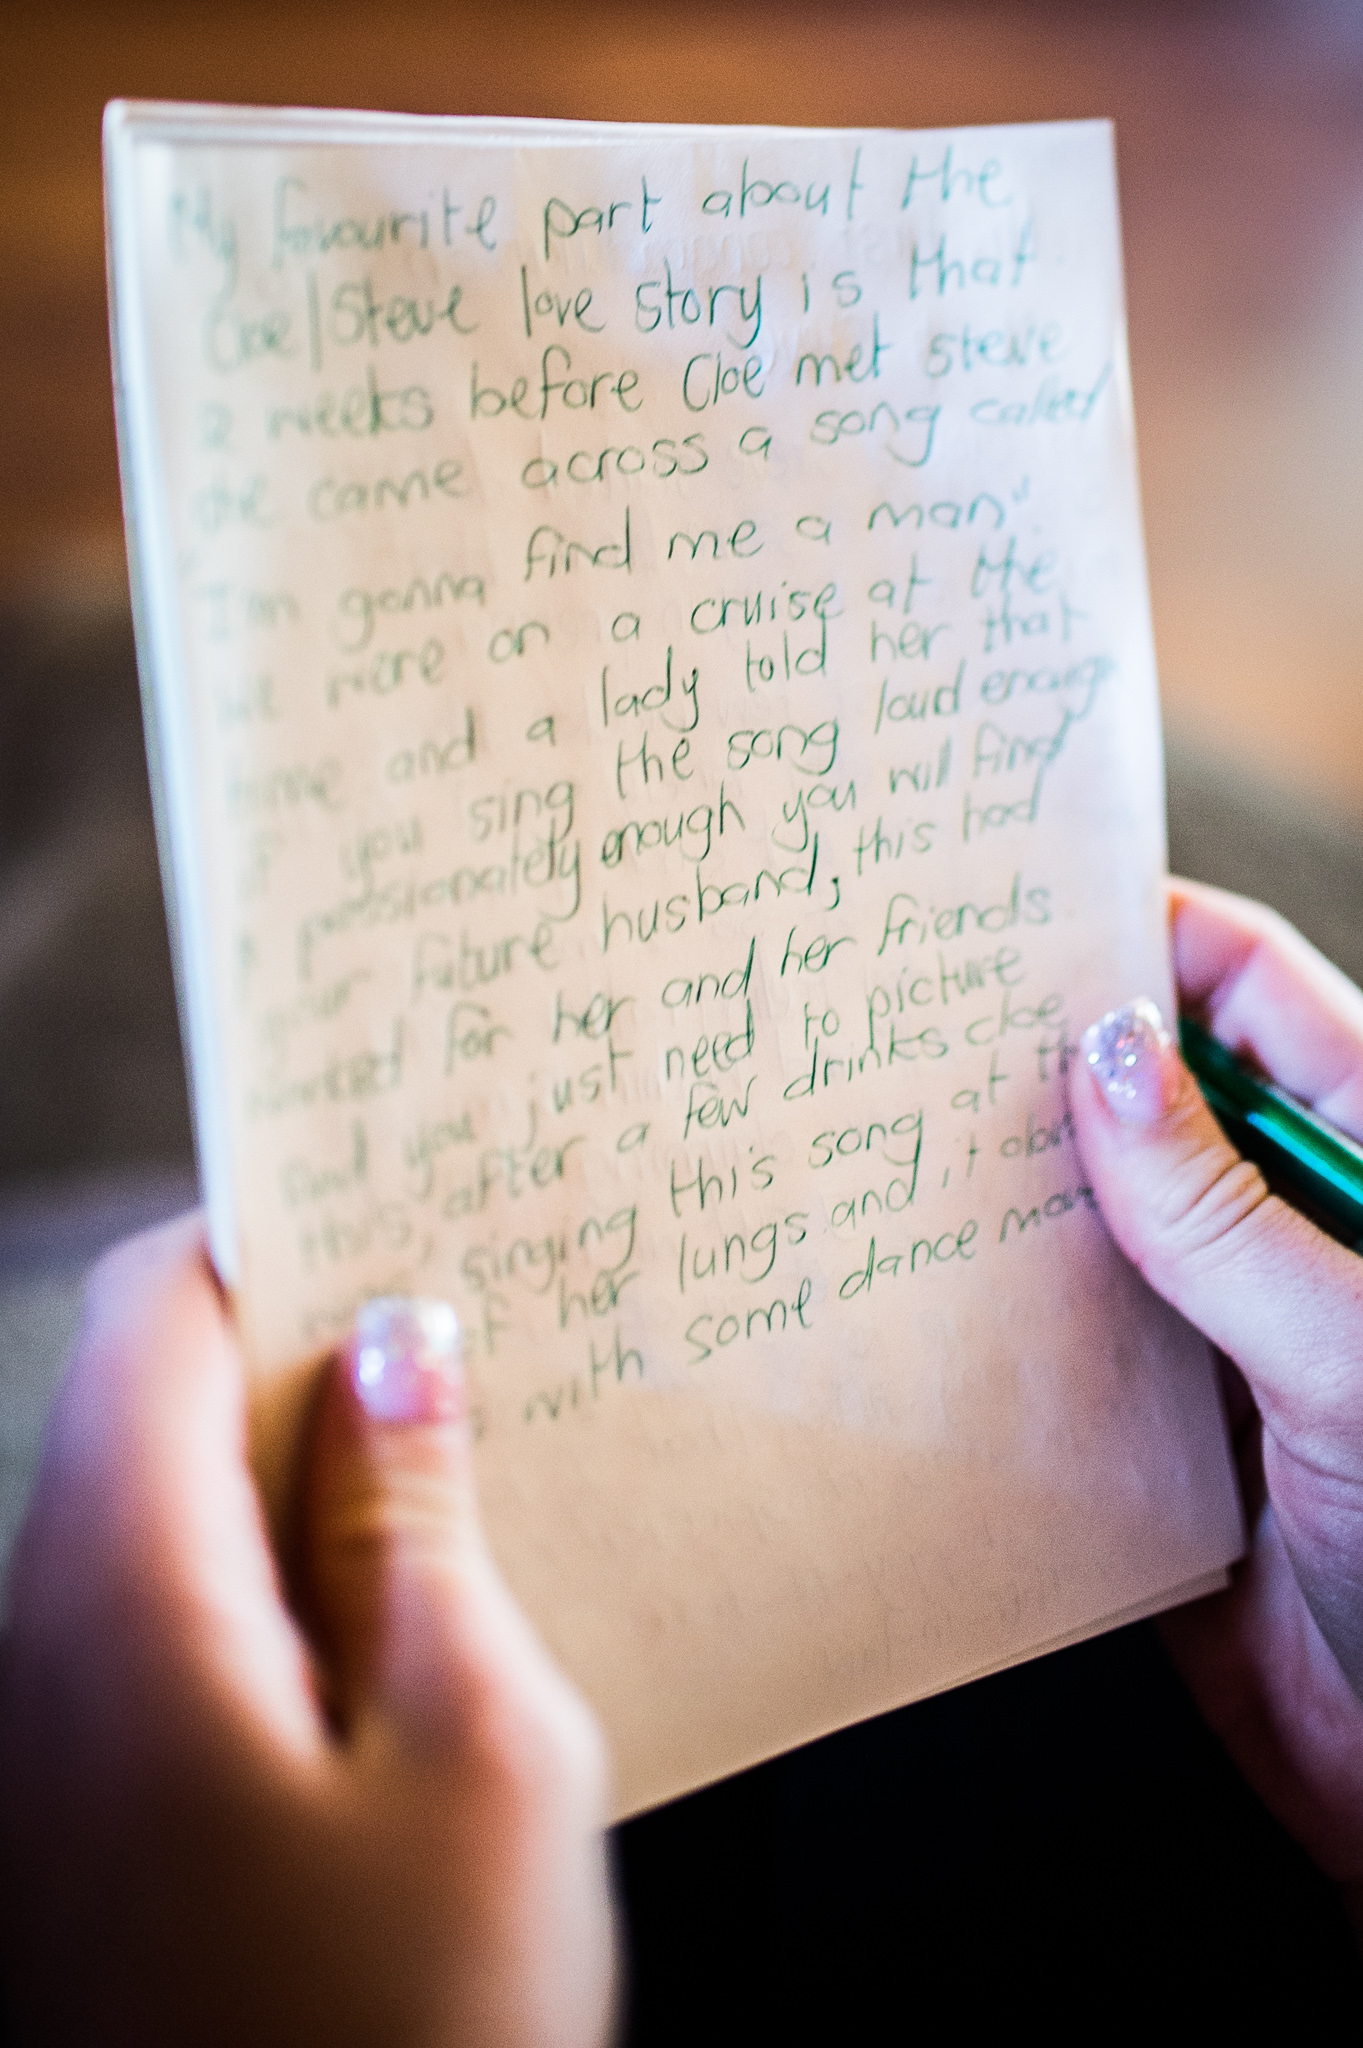 My favourite part about the
Cloe/Steve love story is that
2 weeks before Cloe met steve
she came across a song called
"I'm gonna find me a man".
we were on a cruise at the
time and a lady told her that
if you sing the song loud enough
& passionately enough you will find
your future husband, this had
worked for her and her friends
And you just need to picture
this, after a few drinks cloe
singing this song at
of her lungs and it
with some dance